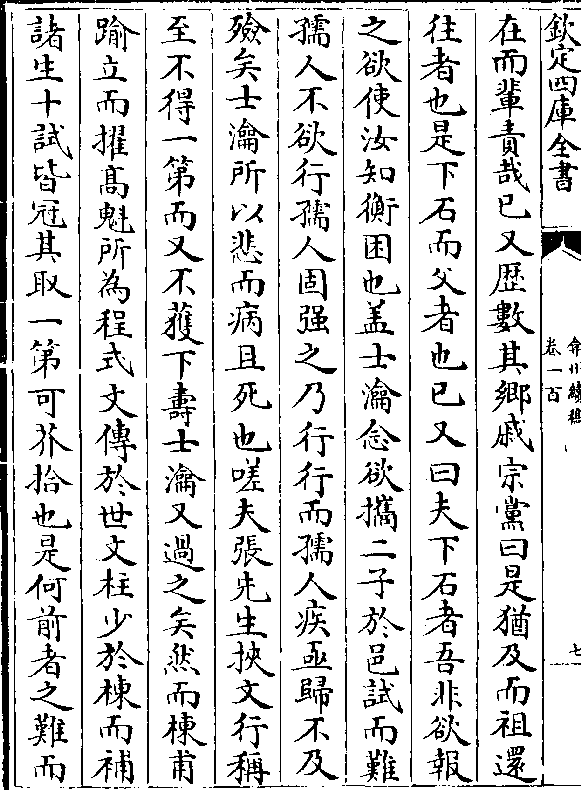 欽定四庫全書
弇州續稿
卷一百
七
在而輩責哉已又歴數其鄉戚宗黨曰是猶及而祖還
往者也是下石而父者也已又曰夫下石者吾非欲報
之欲使汝知衡困也盖士瀹念欲攜二子於邑試而難
孺人不欲行孺人固强之乃行行而孺人疾亟歸不及
殮矣士瀹所以悲而病且死也嗟夫張先生挾文行稱
至不得一第而又不獲下壽士瀹又過之矣然而棟甫
踰立而擢髙魁所為程式文傳於世文柱少於棟而補
諸生十試皆冠其取一第可芥拾也是何前者之難而